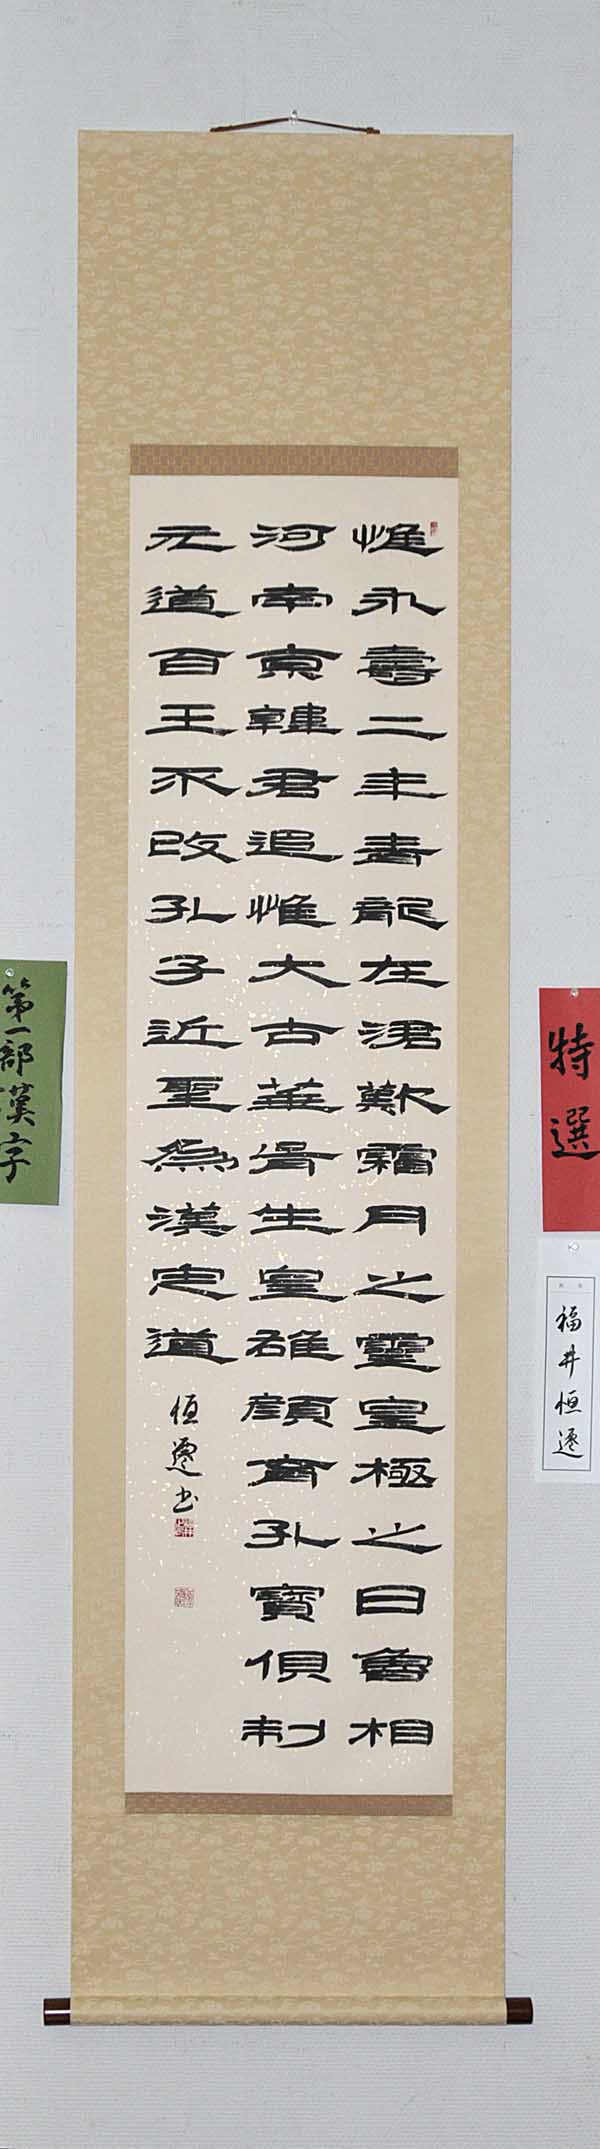 惟永壽二年青龍在涒歎霜月之靈皇極之日魯相
河南京韓君追惟大古華胥生皇雄顏育孔寶俱制
元道百王不改孔子近聖為漢定道
恒遷书
特選
福井恒遷
第一部漢字